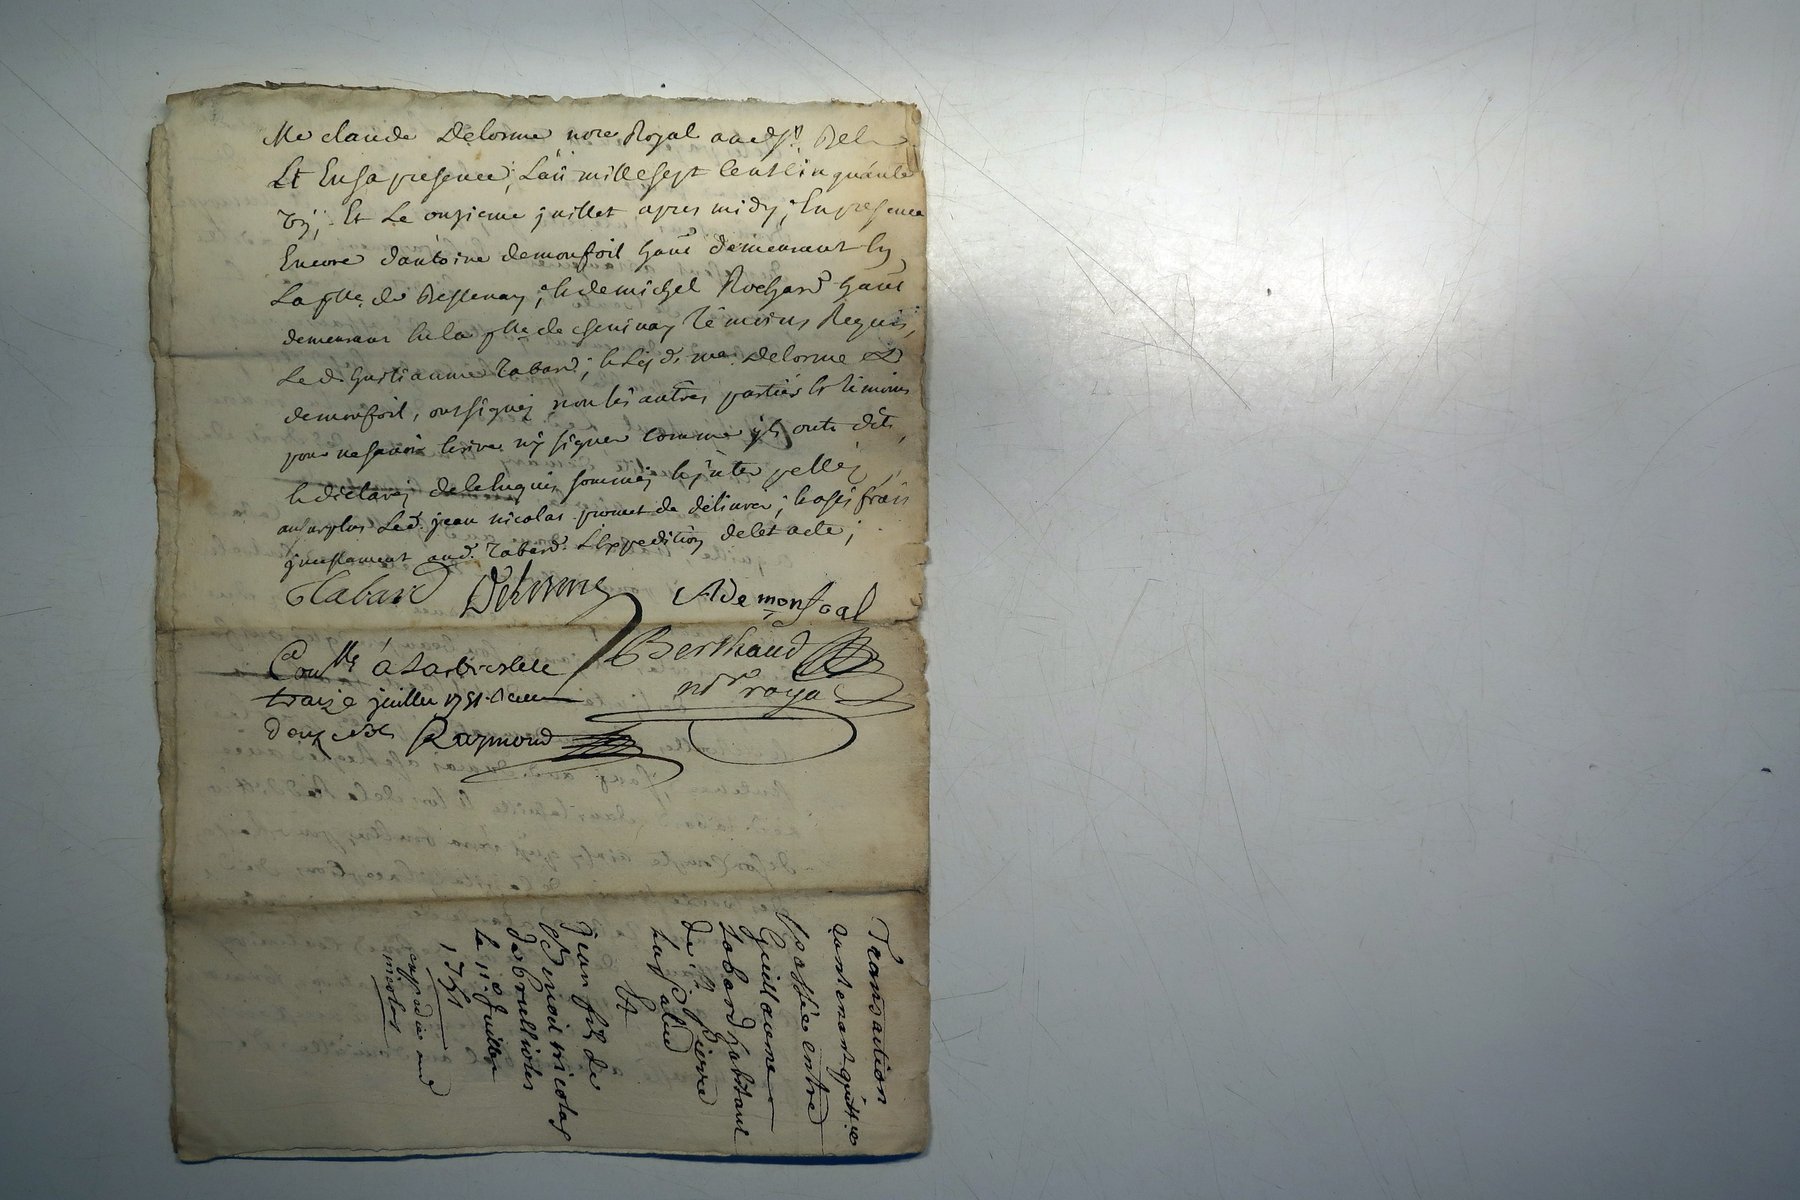 Me claude Delorme nore Royal audt. Bel
Et En sa presence, L'an mille sept Cent Cinquante
Et Le onzieme juillet apres midy, En presence
Encore d'antoine demonfoil hant demeurant En
La psse. de, Et de michel Rochard hant
demeurant En la psse de chevinay Témoins Requis,
Le d. Guillaume Tabard, led. me. Delorme Et
demonfoil, ont signés non les autres parties Et témoins
pour ne savoir Ecrire ny signer comme ils ont dit,
Et declaré de ce Enquis sommés Et jnterpellés
au surplus Led. jean nicolas promet de délivrer, Et a ses frais
jncessament aud. Tabard. L'Expedition de cet acte;
GTabard Delorme ADemonfoal
Berthaud
nore royal
Conllé à Larbresle
treize juillet 1751. Reçeu
douze sols Raymond
Transaction
contenant quittce
passée entre
Guillaume
tabard habitant
de St pierre
lapalud
Et
jean fils de
Benoit nicolas
des brulliolles
le 11e. Juillet
1751
expedié aud
nicolas